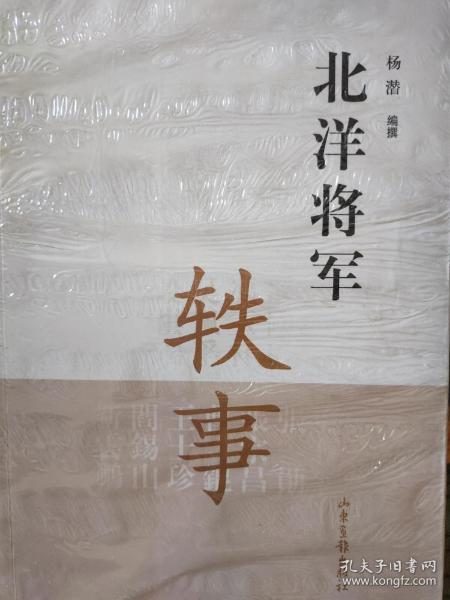 杨潜 编撰
北洋将军
轶事
阎锡山
山东画报出版社
孔夫子旧书网
kongfz.com